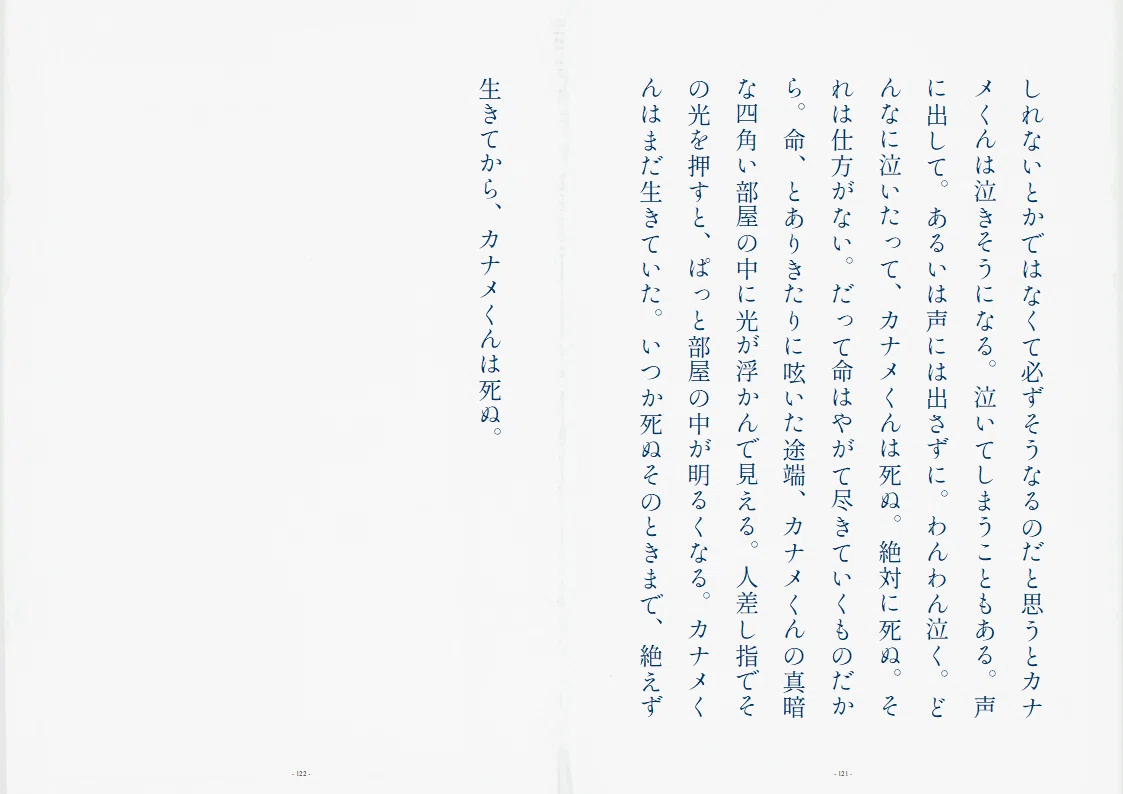 しれないとかではなくて必ずそうなるのだと思うとカナ
メくんは泣きそうになる。泣いてしまうこともある。声
に出して。あるいは声には出さずに。わんわん泣く。ど
んなに泣いたって、カナメくんは死ぬ。絶対に死ぬ。そ
れは仕方がない。だって命はやがて尽きていくものだか
ら。命、とありきたりに呟いた途端、カナメくんの真暗
な四角い部屋の中に光が浮かんで見える。人差し指でそ
の光を押すと、ぱっと部屋の中が明るくなる。カナメく
んはまだ生きていた。いつか死ぬそのときまで、絶えず
- 121 -
生きてから、カナメくんは死ぬ。
- 122 -